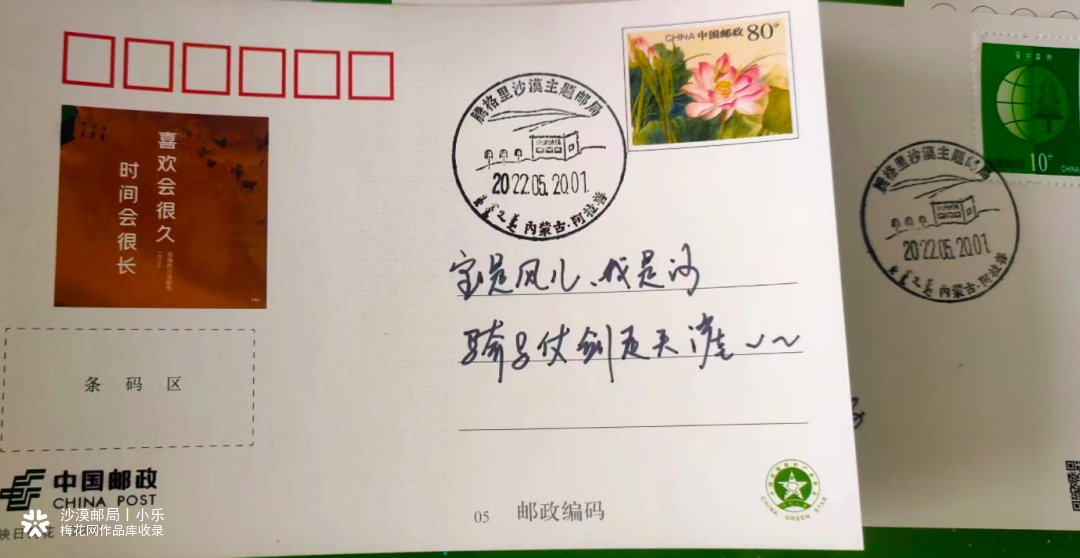 CHINA 中国邮政 80分
腾格里沙漠主题邮局
2022.05.20.01
内蒙古·阿拉善
喜欢会很久
时间会很长
是风儿、我是沙
仗剑走天涯~~
条码区
中国邮政
CHINA POST
05 邮政编码
CHINA GREEN STAR
沙漠邮局 | 小乐
梅花网作品库收录
10分
腾格里沙漠主题邮局
2022.05.20.01
内蒙古·阿拉善